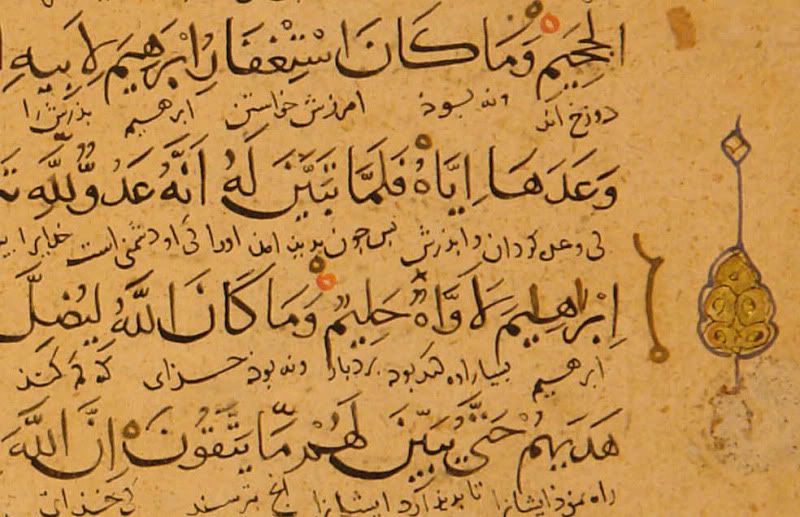 الجَحِيمِ وَمَا كَانَ اسْتِغْفَارُ ابْرَهِيمَ لِابِيهِ
دوزخ اند ونه بود امرزش خواستن ابرهيم بذرش را
وَعَدَهَا اِيَّاهُ فَلَمَّا تَبَيَّنَ لَهُ اَنَّهُ عَدُوٌّ لِلَّهِ
بس چون بديد امذ اورا كى او دشمنى است خدايرا
اِبْرهِيمَ لَاَوَّاهٌ حَلِيمٌ وَمَا كَانَ اللَّهُ لِيُضِلَّ
ابرهيم بسيار اه كننده بود بردبار ونه بوذ خذاى كه كم كند
هَدَيهُمْ حَتَّى يُبَيِّنَ لَهُمْ مَا يَتَّقُونَ اِنَّ اللَّهَ
راه نموذ ايشانرا تا بديد آرد ايشانرا انج بترسند كى خذاى